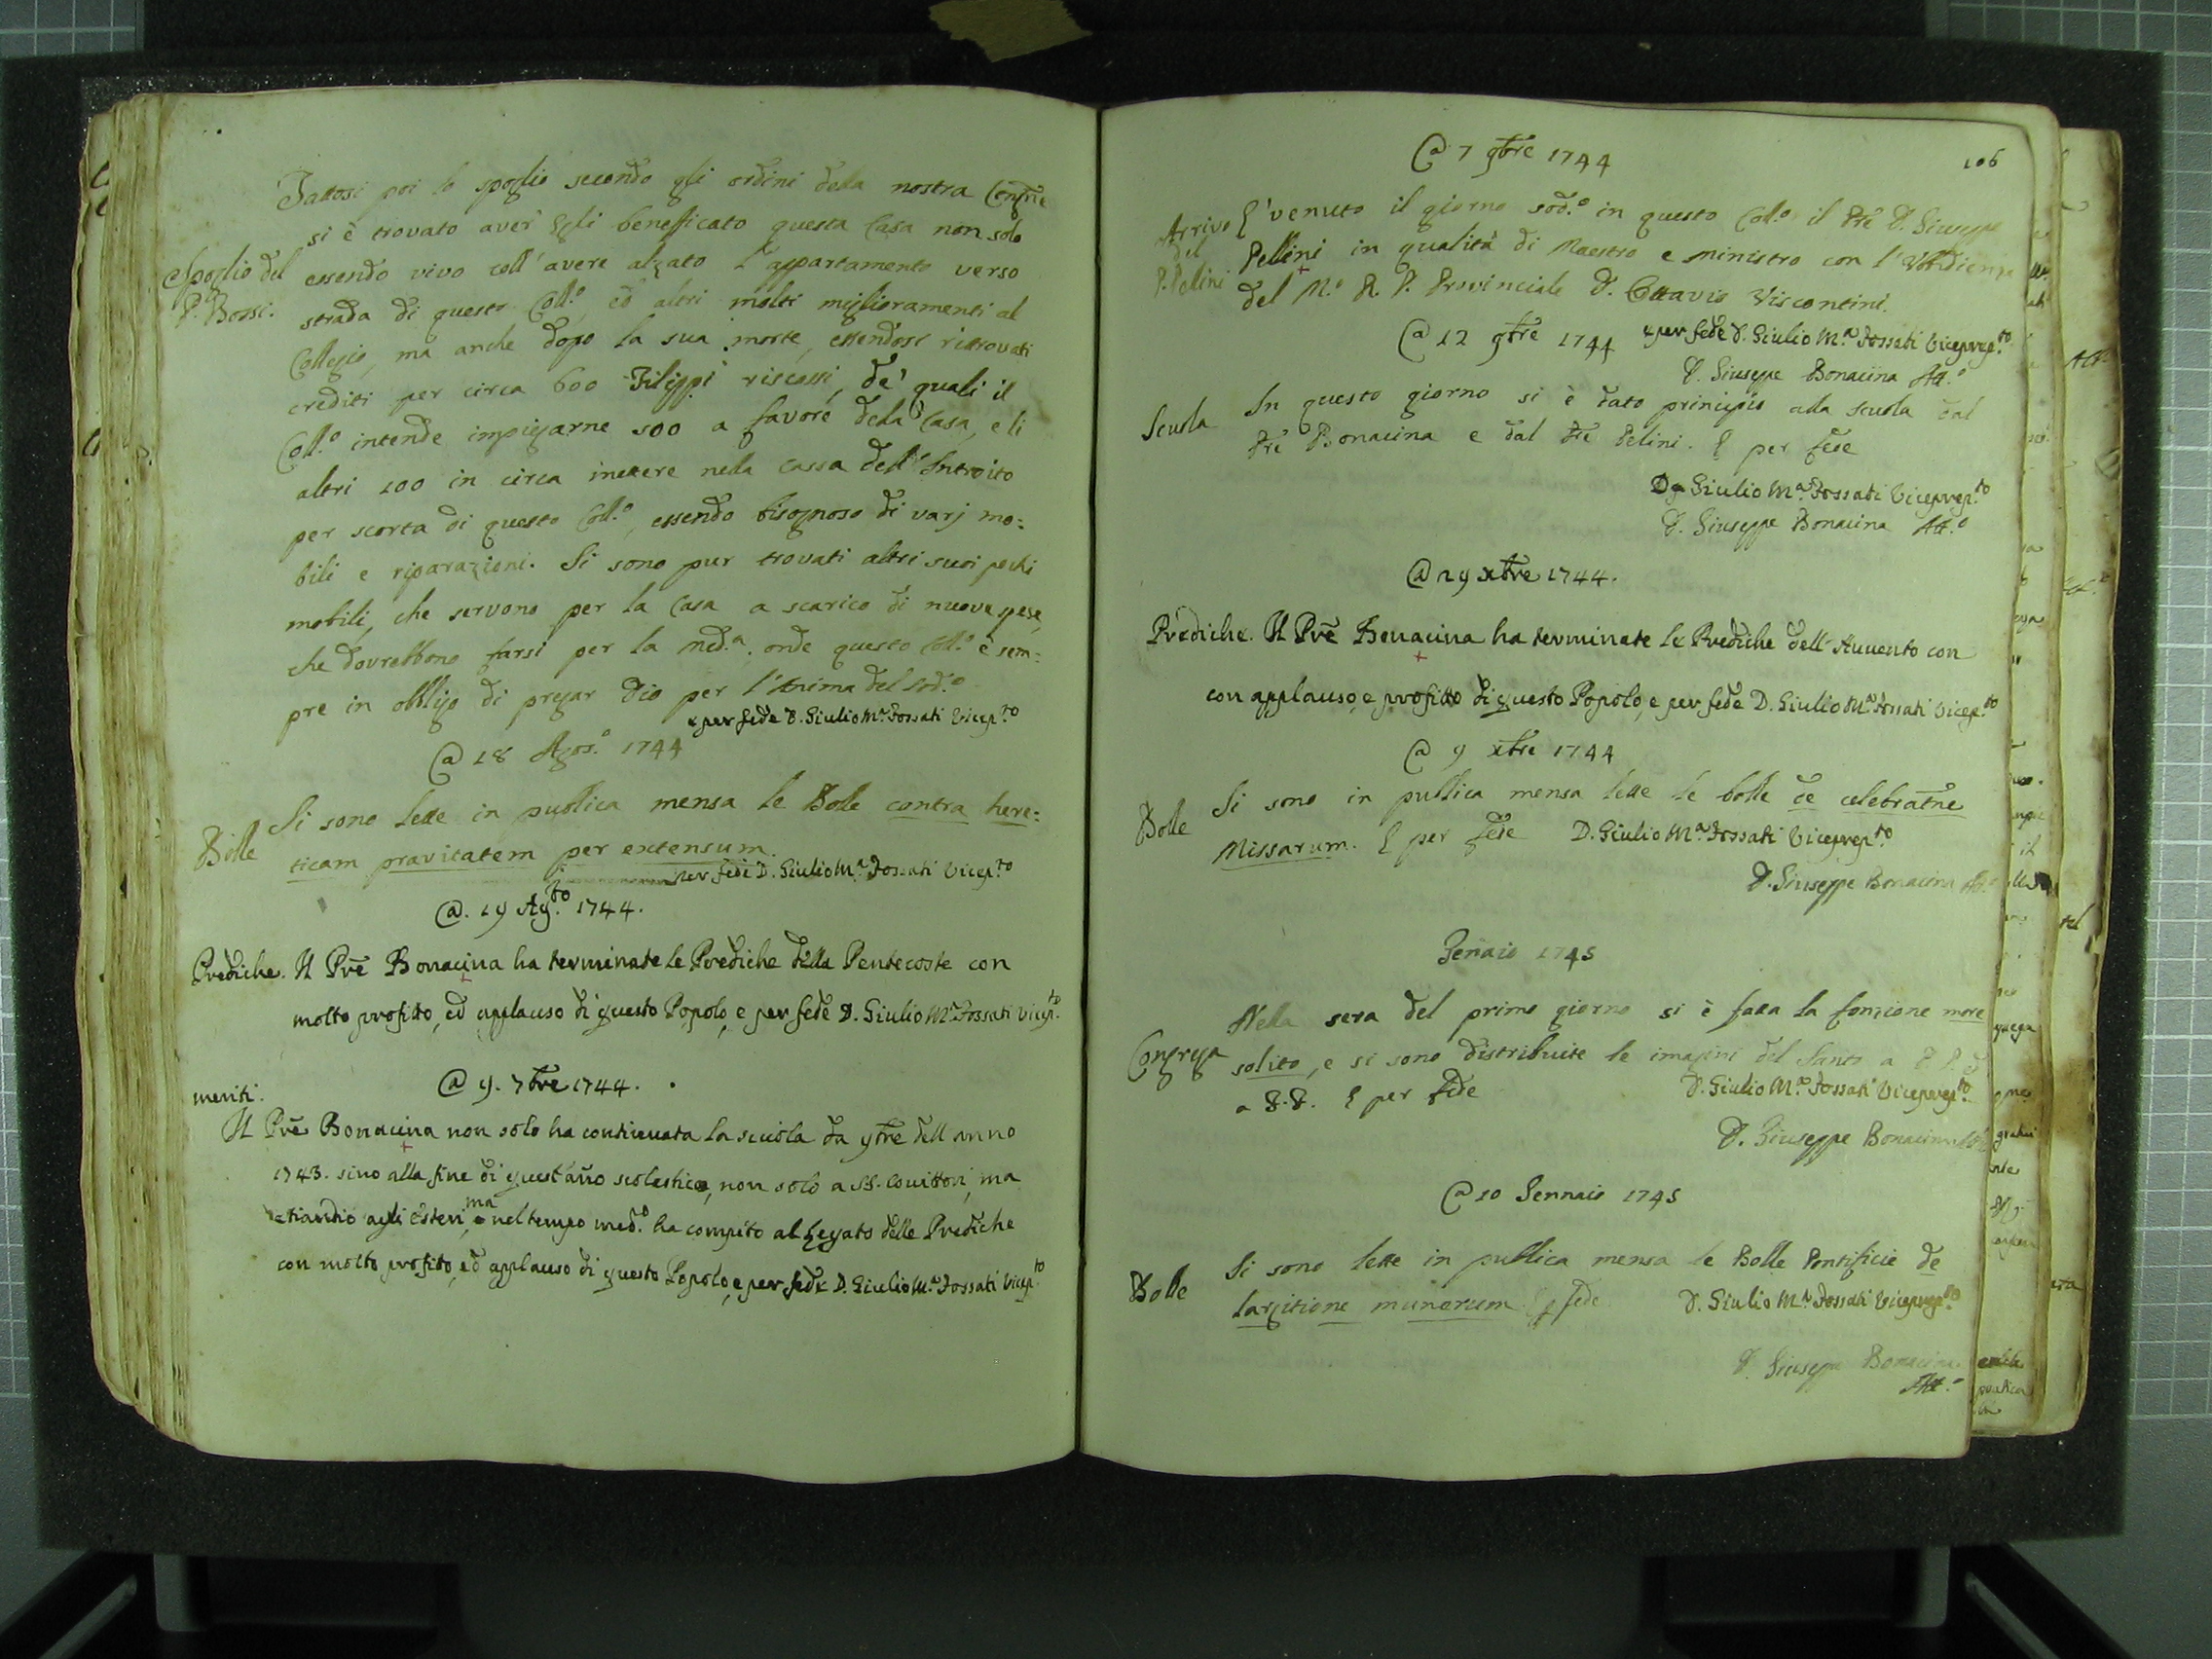 Fattosi poi lo spoglio secondo gli ordini della nostra Congne
si è trovato aver Egli benefficato questa Casa non solo
Spoglio del P. Bossi.
essendo vivo coll'avere alzato l'appartamento verso
strada di questo Coll.o, ed altri molti miglioramenti al
Collegio, ma anche dopo la sua morte, essendosi ritrovati
crediti per circa 600 Filippi riscossi, de' quali il
Coll.o intende impiegarne 500 a favore della Casa, e li
altri 100 in circa mettere nella cassa dell'Introito
per scorta di questo Coll.o, essendo bisognoso di varj mo:
bili e riparazioni. Si sono pur trovati altri suoi pochi
mobili, che servono per la Casa a scarico di nuove spese,
che dovrebbono farsi per la med.a. onde questo Coll.o è sem:
pre in obbligo di pregar Dio per l'Anima del sod.o
e per fede D. Giulio M.a Fossati Vicep.to
@ 18 Agos.o 1744
Si sono lette in publica mensa le Bolle contra here:
Bolle
ticam pravitatem per extensum.
per fede D. Giulio M.a Fossati Vicep.to
@. 19 Ag.to 1744.
Prediche. Il Prē Bonacina ha terminate le Prediche della Pentecoste con
molto profitto, ed applauso di questo Popolo, e per fede D. Giulio M.a Fossati Vicep.to
@ 9. 7bre 1744.
meriti.
Il Prē Bonacina non solo ha continuata la scuola da 9bre dell anno
1743. sino alla fine di quest'anño scolastico, non solo a SS. Convittori, ma
etiandio agli Esteri, ma nel tempo med.o ha compito al Legato delle Prediche
con molto profitto, ed applauso di questo Popolo, e per fede D. Giulio M.a Fossati Vicep.to
106
@ 7 9bre 1744
Arrivo del P. Pelini
E' venuto il giorno sod.o in questo Coll.o il Prē D. Giuseppe
Pellini in qualità di Maestro e ministro con l'Vbbidienza
del M.o R. P. Provinciale D. Ottavio Viscontini.
@ 12 9bre 1744
e per fede D. Giulio M.a Fossati Viceprep.to
D. Giuseppe Bonacina Att.o
Scuola
In questo giorno si è dato principio alla scuola dal
Prē Bonacina e dal Prē Pelini. E per fede
D. Giulio M.a Fossati Viceprep.to
D. Giuseppe Bonacina Att.o
@ 29 xbre 1744.
Prediche. Il Prē Bonacina ha terminate le Prediche dell'Auuento con
con applauso, e profitto di questo Popolo, e per fede D. Giulio M.a Fossati Vicep.to
@ 9 xbre 1744
Bolle
Si sono in publica mensa lette le bolle de celebratne
Missarum. E per fede D. Giulio M.a Fossati Viceprep.to
D. Giuseppe Bonacina Att.o
Genaio 1745
Nella sera del primo giorno si è fatta la fonzione more
Congrega
solito, e si sono distribuite le imagini del Santo a P. P. e
a F.F. E per fede
D. Giulio M.a Fossati Viceprep.to
D. Giuseppe Bonacina
@ 10 Gennaio 1745
Si sono lette in publica mensa le Bolle Pontificie de
Bolle
largitione munerum E p fede
D. Giulio M.a Fossati Viceprep.to
D. Giuseppe Bonacina
Att.o